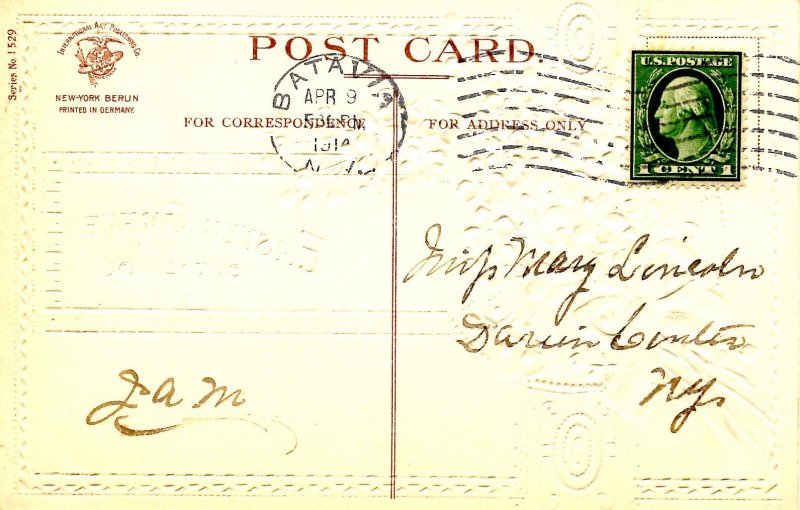 Series No. 1529
INTERNATIONAL ART PUBLISHING CO.
NEW-YORK BERLIN
PRINTED IN GERMANY.
POST CARD.
BATAVIA
APR 9
1914
N.Y.
FOR CORRESPONDENCE
FOR ADDRESS ONLY
U.S. POSTAGE
1 CENT 1
Miss Mary Lincoln
Darien Center
NY